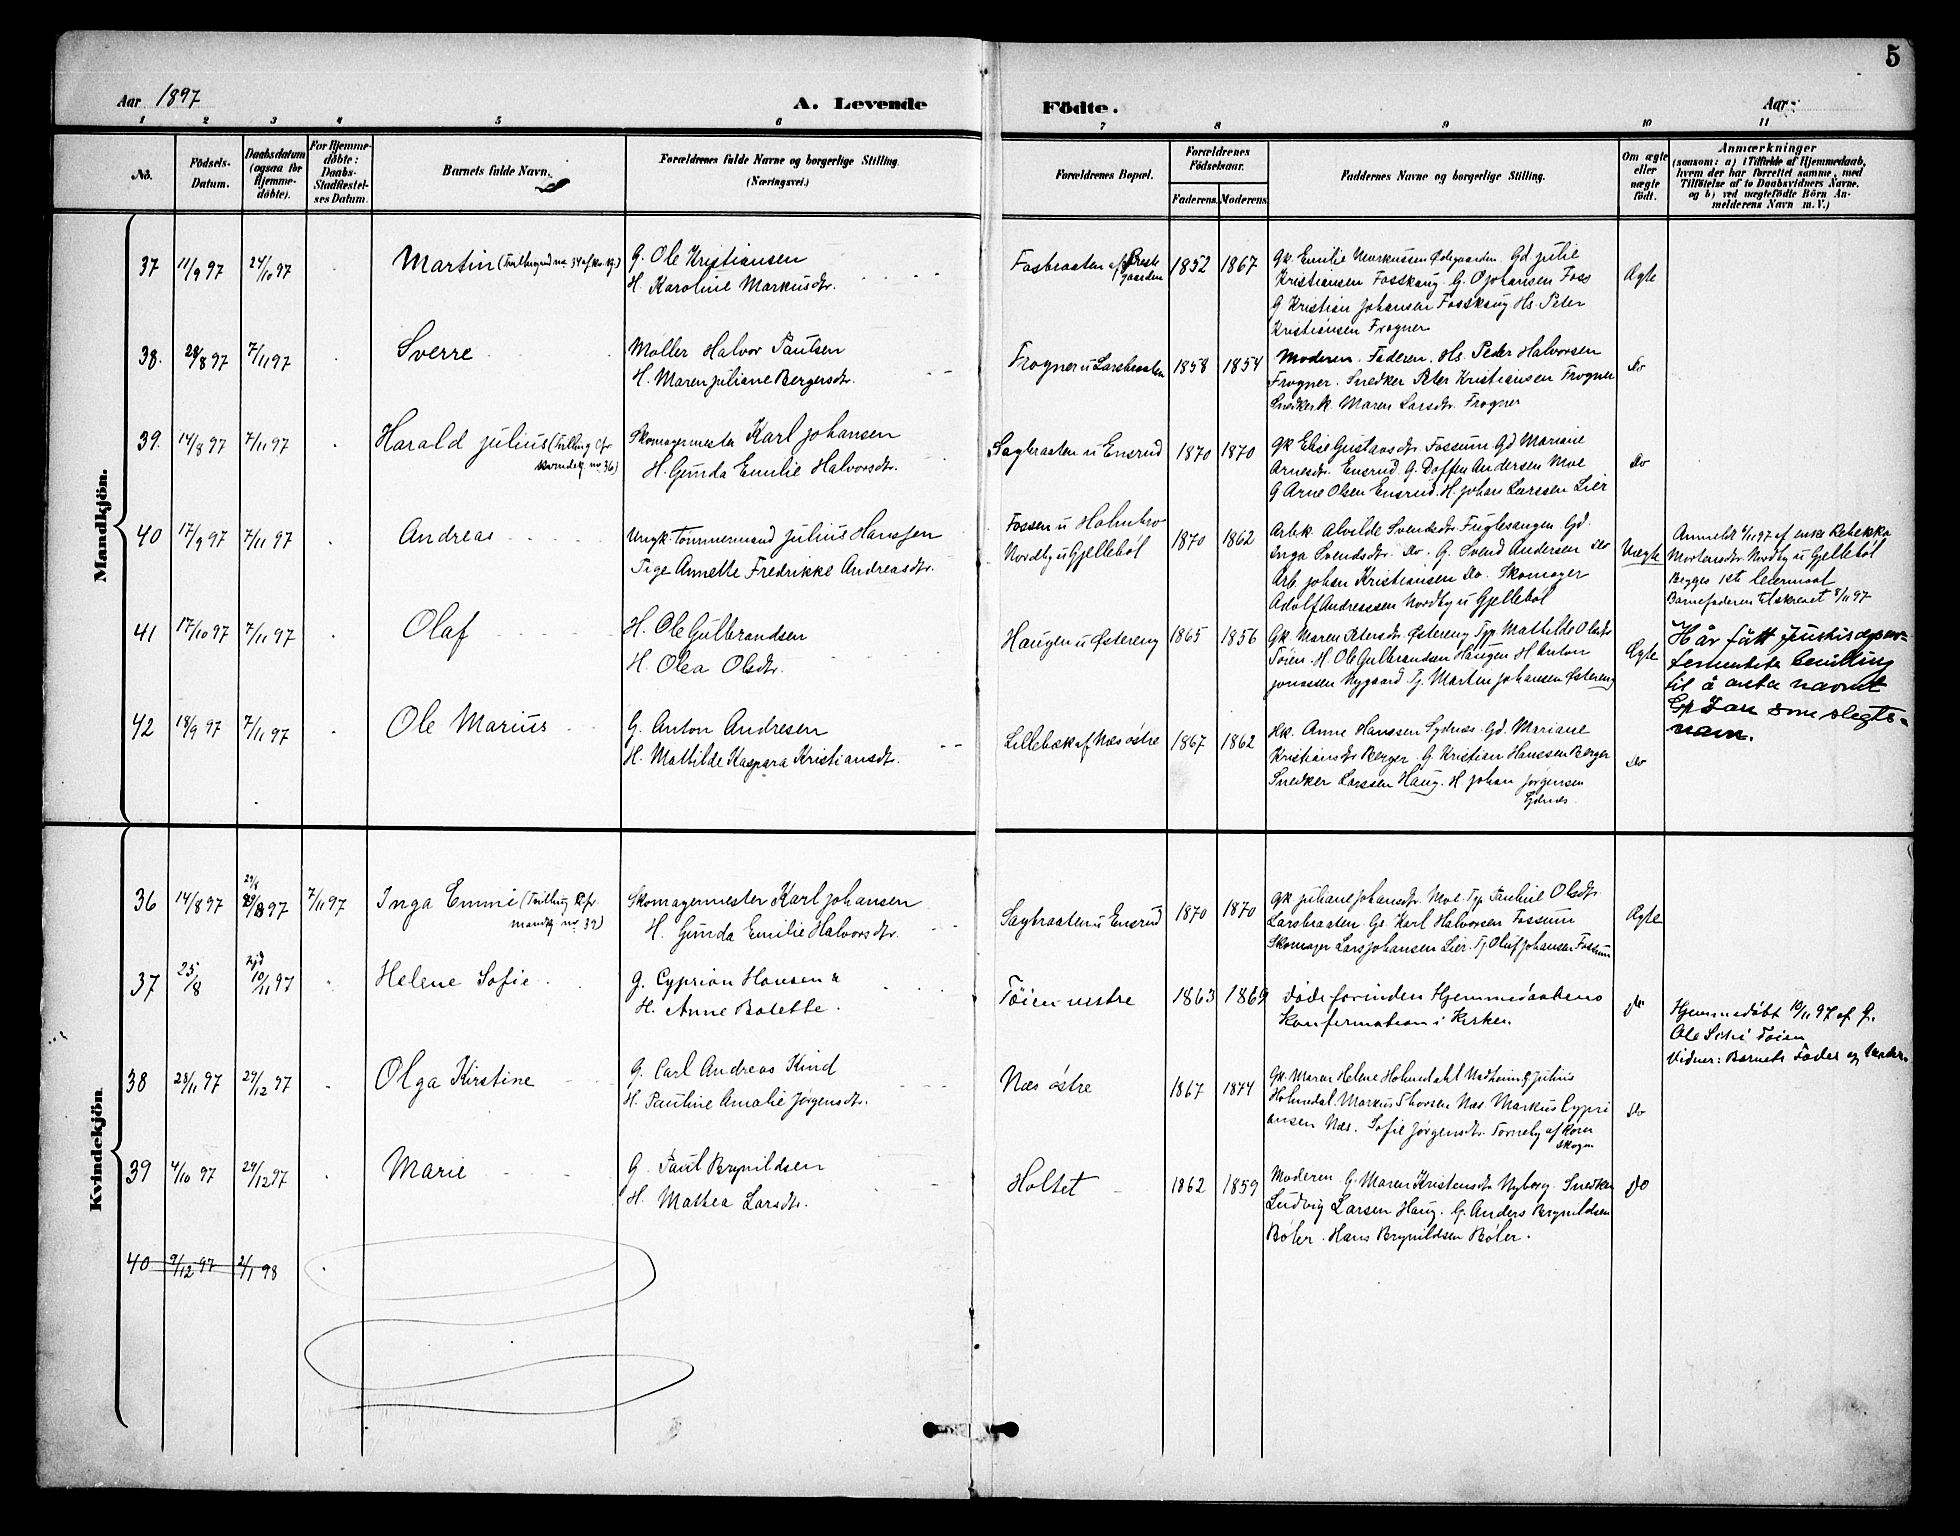 5
Aar 1897
A. Levende
Födte.
Aar
1 2 3 4 5 6 7 8 9 10 11
No.
Födsels-
Datum.
Daabsdatum
(ogsaa for
Hjemme-
döbte).
For Hjemme-
döbte:
Daabs-
Stadfæstel-
ses Datum.
Barnets fulde Navn.
Forældrenes fulde Navne og borgerlige Stilling.
(Næringsvei.)
Forældrenes Bopæl.
Forældrenes
Födselsaar.
Faderens. Moderens.
Faddernes Navne og borgerlige Stilling.
Om ægte
eller
uægte
födt.
Anmærkninger
(saasom: a) i Tilfælde af Hjemmedaab,
hvem der har forrettet samme, med
Tilföielse af to Daabsvidners Navne.
og b) ved uægtefödte Börn An-
melderens Navn m. V.)
Mandkjön.
37 11/9 97 24/10 97 Martin
G. Ole Kristiansen
H. Karoline Markusdtr.
Fosbraaten af Preste
gaarden
1852 1867
Gk. Emilie Markussen Ødegaarden. Gd Julie
Kristiansen Fosskaug. G. O Johansen Foss
G Kristian Johansen Fosskaug Hs. Peter
Kristiansen Frogner
Ægte
38. 28/8 97 7/11 97 Sverre
Møller Halvor Paulsen
H. Maren Juliane Bergersdtr.
Frogner u Larsbraaten 1858 1854
Moderen. Faderen. Hs. Peder Halvorsen
Frogner. Snedker Peter Kristiansen Frogner
Snedkerk. Maren Larsdtr. Frogner
Do
39. 14/8 97 7/11 97 Harald Julius (Tvilling cfr
kvindekj no 36)
Skomagermester Karl Johansen
H. Gunda Emilie Halvorsdtr.
Sagbraaten u Ensrud 1870 1870
Gk Elise Gustavsdtr Fossum Gd Mariane
Arnesdtr. Ensrud G. Doffen Andersen Moe
G Arne Olsen Ensrud. H. Johan Larssen Lier
Do
40 17/9 97 7/11 97 Andreas
Ungk. Tømmermand Julius Hanssen
Pige Annette Fredrikke Andreasdtr.
Fossen u Holmbro
Nordby u Gjellebøl
1870 1862
Arbk Alvilde Svendsdtr Fuglesangen Gd.
Inga Svendsdtr. Do. G. Svend Andersen Do
Arb. Johan Kristiansen Do. Skomager
Adolf Andreassen Nordby u Gjellebøl
Uægte
Anmeldt 6/11 97 af enke Rebekka
Mortensdtr Nordby u Gjellebøl
Begges 1ste Leiermaal
Barnefaderen tilskrevet 8/11 97
41 17/10 97 7/11 97 Olaf
H. Ole Gulbrandsen
H. Olea Olsdtr.
Haugen u Østereng 1865 1856
Gk. Maren Petersdtr. Østereng Tjp Mathilde Olsdtr
Tøien. H. Ole Gulbrandsen Haugen H Anton
Jonassen Nygaard Tj. Martin Johansen Østereng
Ægte
Har fått Justisdepar-
tementets bevilling
til å anta navnet
som slegts-
navn.
42 18/9 97 7/11 97 Ole Marius
G. Anton Andresen
H. Mathilde Kaspara Kristiansdtr.
Lillebæk af Næs østre 1867 1862
Hk. Anne Hanssen Sydnæs. Gd. Mariane
Kristiansdtr Berger. G Kristian Hanssen Berger
Snedker Larssen Haug. H Johan Jørgensen
Sydnæs.
Do
Kvindekjön
36 14/8 97 29/8 97 7/11 97 Inga Emmi (Tvilling cfr
mandkj no. 39)
Skomagermester Karl Johansen
H. Gunda Emilie Halvorsdtr.
Sagbraaten u Ensrud 1870 1870
Gk Juliane Johansdtr. Moe. Tjp Pauline Olsdtr.
Larsbraaten Gs. Karl Halvorsen Fossum
Skomager Lars Johansen Lier. Tj Oluf Johansen Fossum
Ægte
37 25/8 10/11 97 Helene Sofie
G. Cyprian Hansen
H. Anne Bolette.
Tøien vestre 1863 1869
døde forinden Hjemmedaabens
Konfirmation i Kirken.
do
Hjemmedøbt 10/11 97 af G.
Ole Tøien
Vidner: Barnets Fader og
38 23/11 97 29/12 97 Olga Kirstine
G. Carl Andreas Kind
H. Pauline Amalie Jørgensdtr.
Næs østre 1867 1874
Gk. Maren Helene Holmdahl Julius
Holmdal Markus Thorsen Næs. Markus Cypri
ansen Næs. Sofie Jørgensdtr. Torneby af
skogen
Do
39 4/10 97 29/12 97 Marie
G. Paul Brynildsen
H. Mathea Larsdtr.
Holtet 1862 1859
Moderen G. Maren Kristensdtr Nyberg. Snedker
Ludvig Larsen Haug. G. Anders Brynildsen
Bøler. Hans Brynildsen Bøler.
Do
40 9/12 97 2/1 98